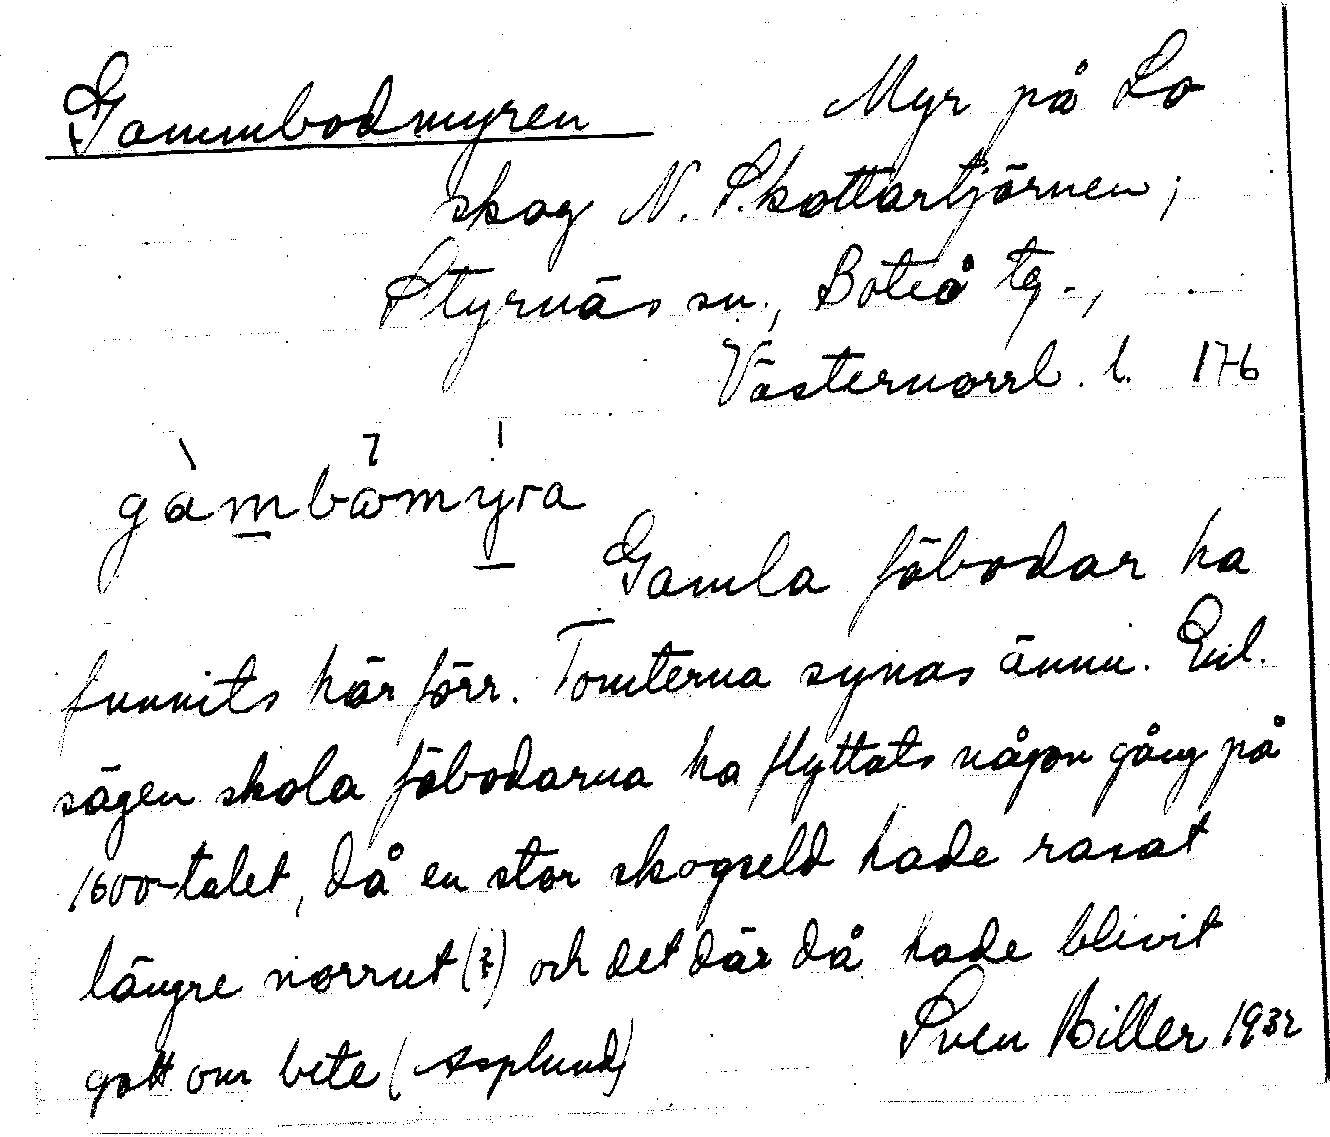 Gammbodmyren Myr på Lo
skog N. Skottartjärnen,
Styrnäs sn., Boteå tg.,
Västernorrl. l. 176
gàm̲bω̊my̲ra
Gamla fäbodar ha
funnits här förr. Tomterna synas ännu. Enl.
sägen skola fäbodarna ha flyttats någon gång på
1600-talet, då en stor skogseld hade rasat
längre norrut (?) och det där då hade blivit
gott om bete (Asplund)
Sven Hiller 1932